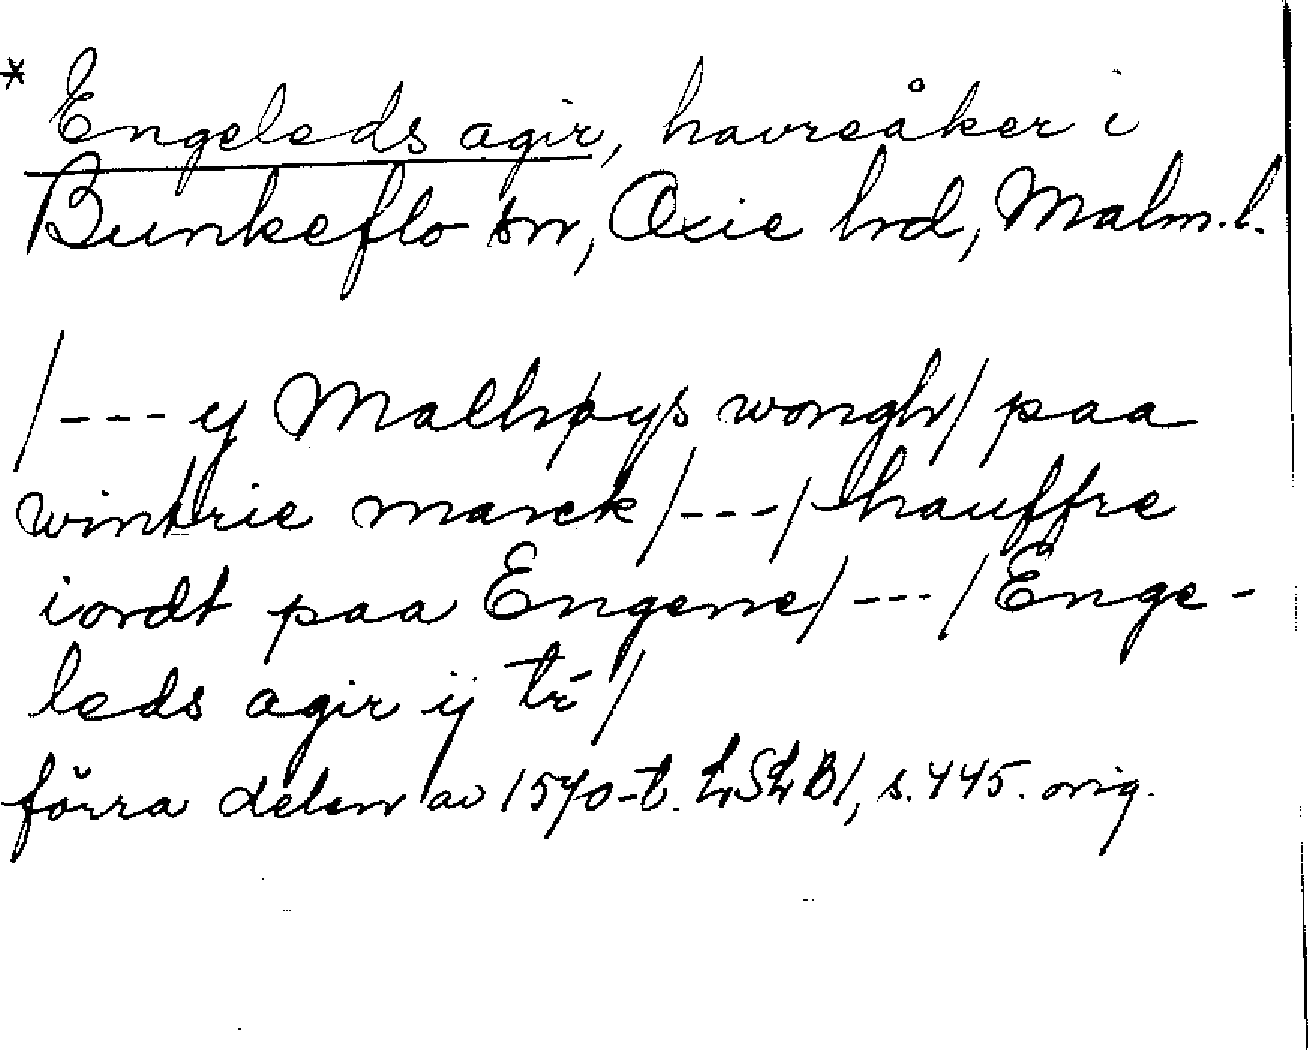 * Engeleds agir, havreåker i
Bunkeflo sn, Oxie hd, Malm.l.
/--- y Malhøys wongh/ paa
wintrie marck/---/hauffre
iordt paa Engene/---/Enge-
leds agir ij tr/
förra delen av 1570-t. LSLB1, s.445. orig.